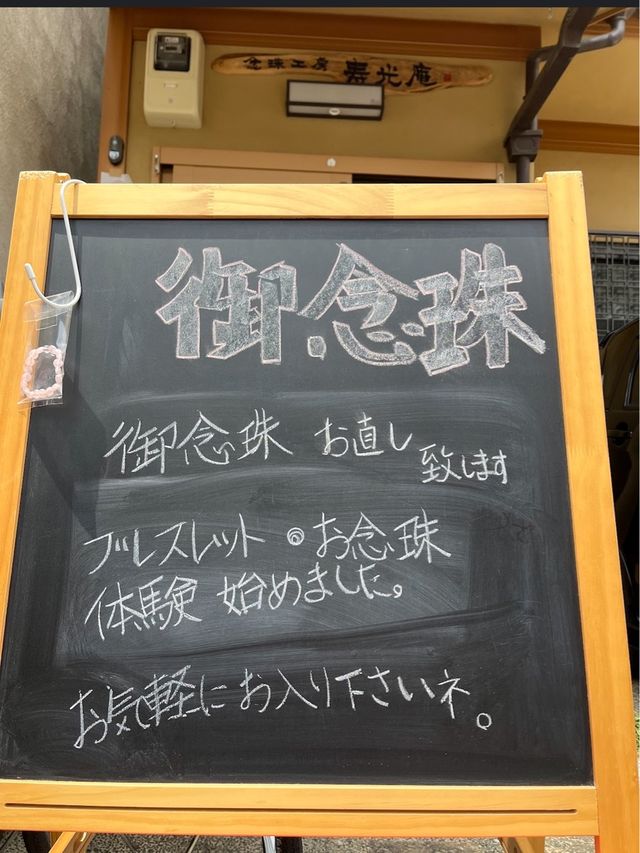 念珠工房 寿光庵
御念珠
御念珠 お直し 致します
ブレスレット・お念珠
体験 始めました。
お気軽にお入り下さいネ。